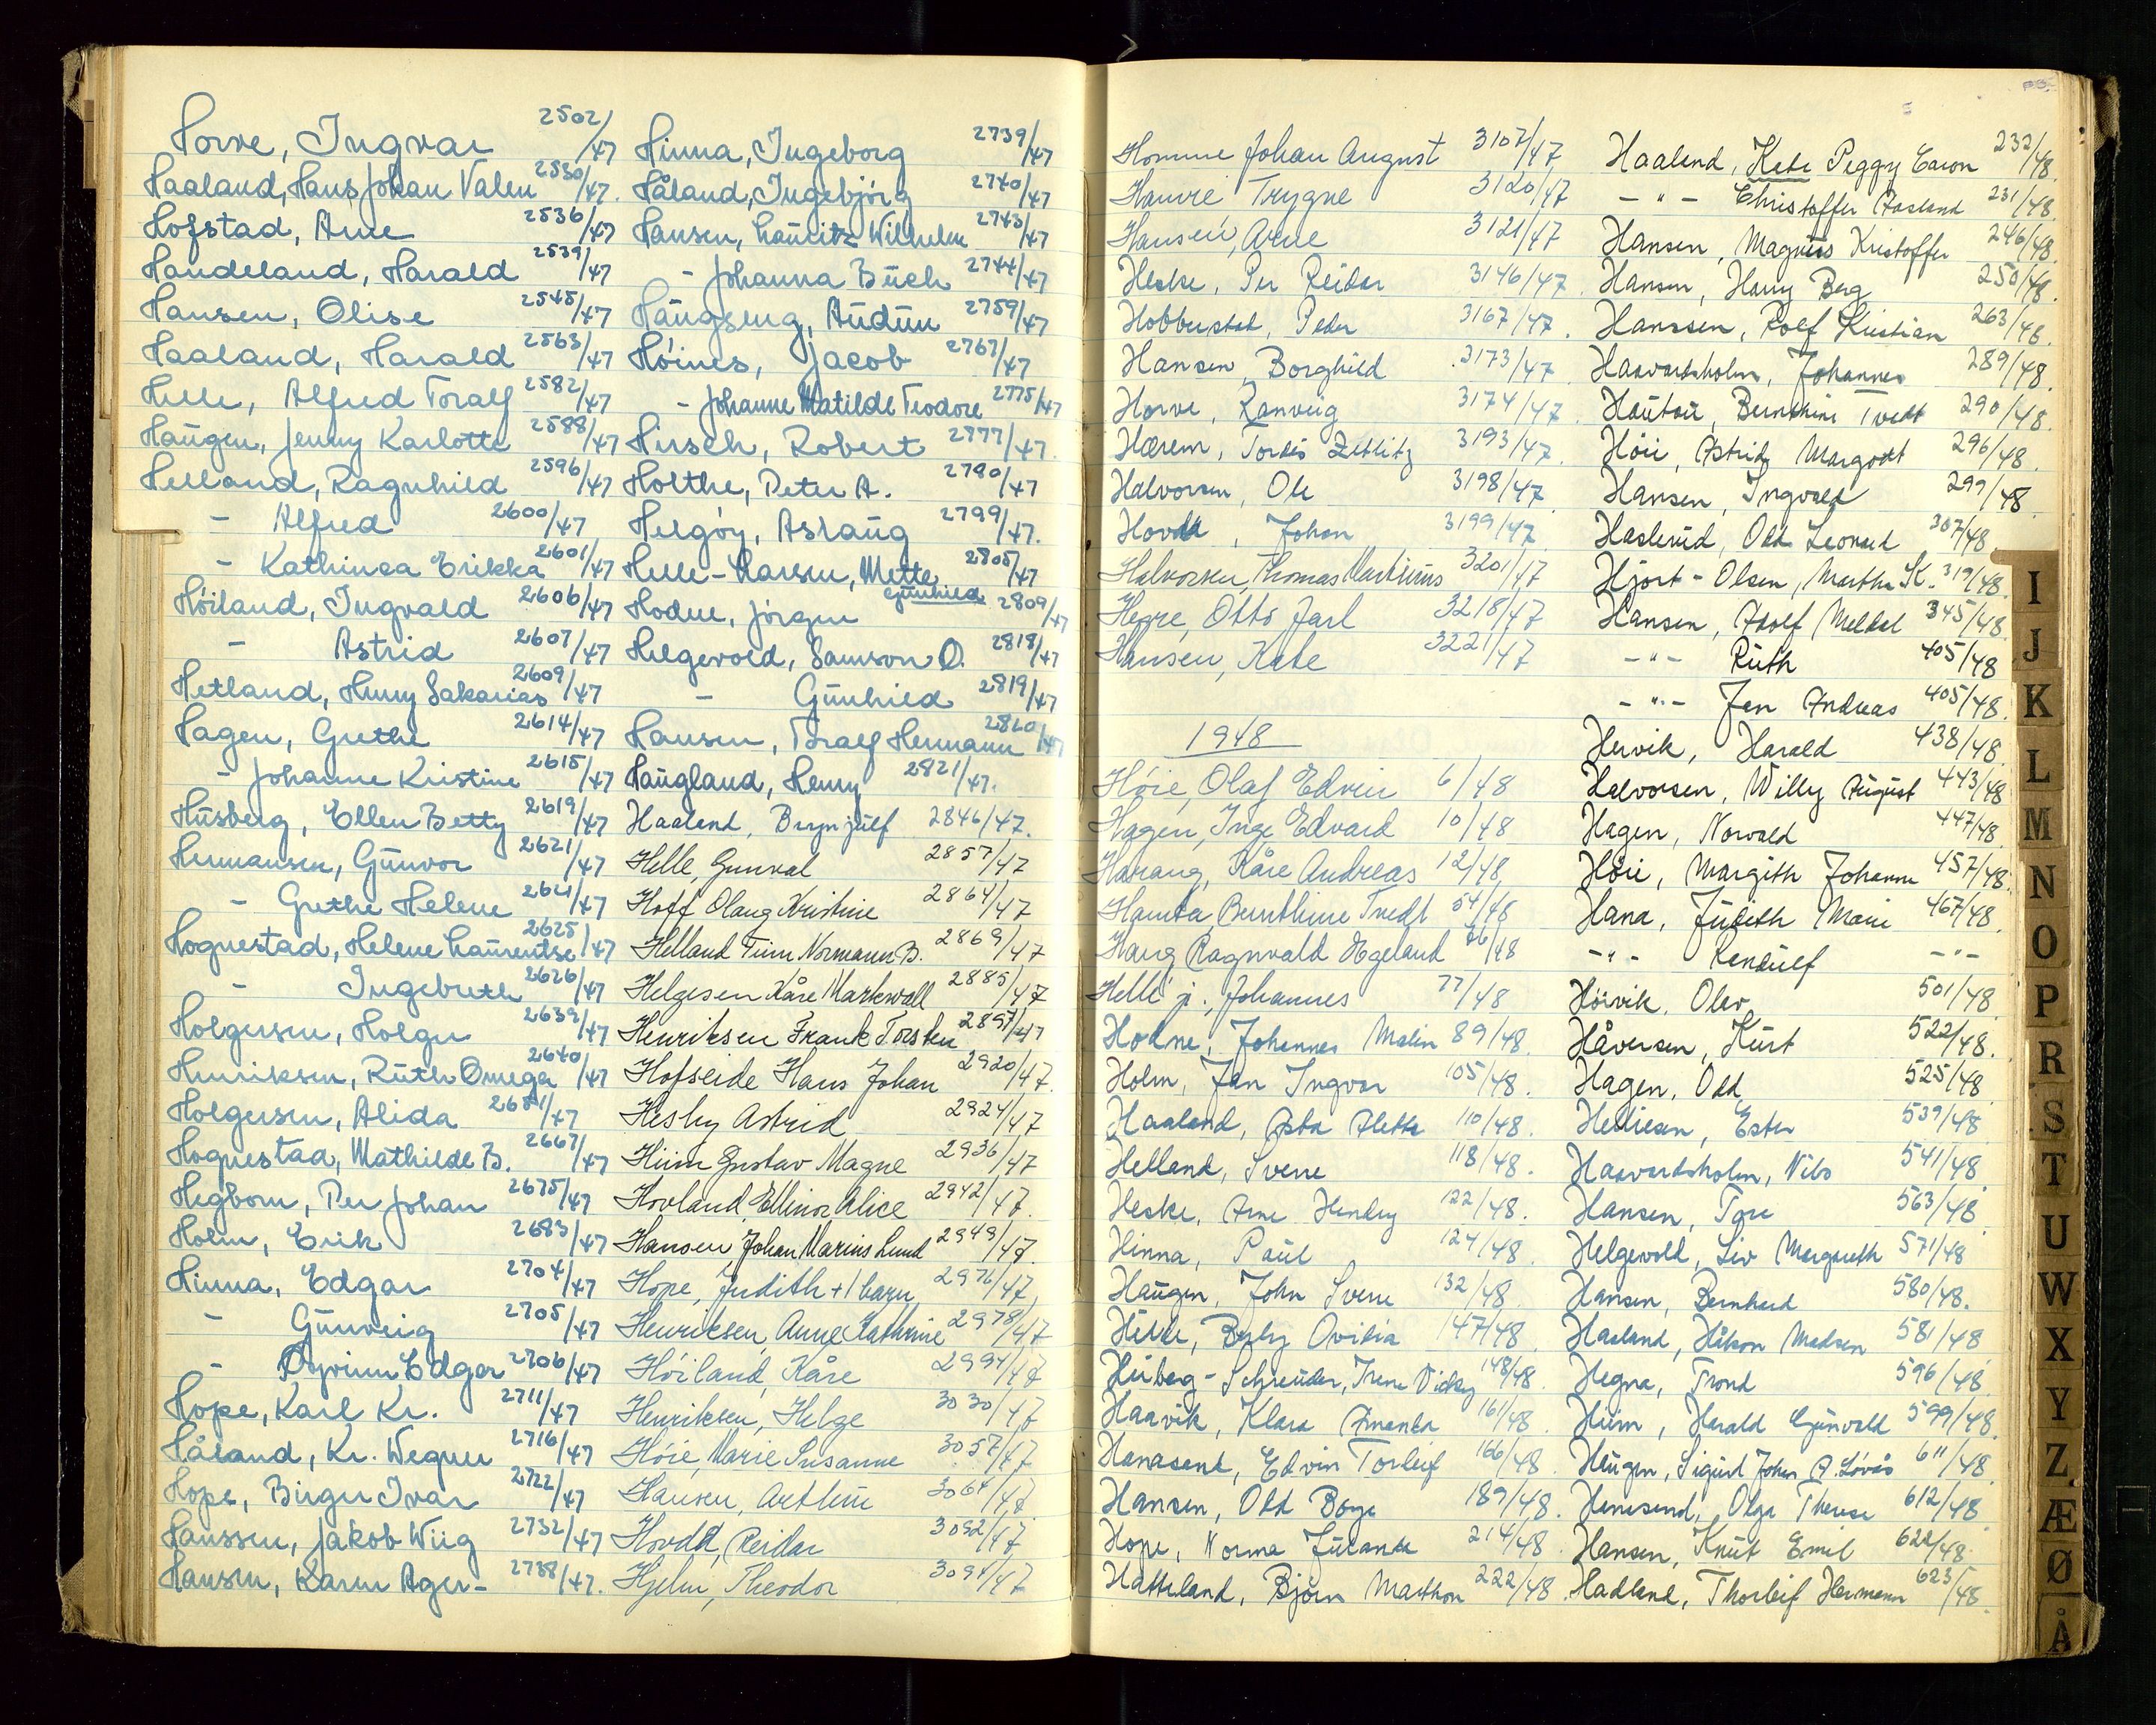 Horve, Ingvar 2502/47
Haaland, Hans Johan Valen 2530/47.
Hofstad, Arne 2536/47
Handeland, Harald 2539/47
Hansen, Olise 2545/47
Haaland, Harald 2563/47
Helle, Alfred Toralf 2582/47
Haugen, Jenny Karlotte 2588/47
Helland, Ragnhild 2596/47
- Alfred 2600/47
- Kathinca Erikka 2601/47
Höiland, Ingvald 2606/47
- Astrid 2607/47
Hetland, Henny Sakarias 2609/47
Hagen, Grethe 2614/47
- Johanne Kristine 2615/47
Husberg, Ellen Betty 2619/47
Hermansen, Gunvor 2621/47
- Grethe Helene 2621/47
Hognestad, Helene Laurentse 2625/47
- Ingebreth 2626/47
Holgersen, Holger 2639/47
Henriksen, Ruth Omega 2640/47
Holgersen, Alida 2651/47
Hognestad, Mathilde B. 2667/47
Hegbom, Per Johan 2675/47
Holm, Erik 2683/47
Hinna, Edgar 2704/47
- Gunveig 2705/47
- Öyvinn Edgar 2706/47
Hope, Karl Kr. 2711/47
Håland, Kr. Wegner 2716/47
Hope, Birger Ivar 2722/47
Hanssen, Jakob Wiig 2732/47
Hansen, Karen Ager- 2738/47.
Hinna, Ingeborg 2739/47
Håland, Ingebjörg 2740/47
Hansen, Lauritz Wilhelm 2743/47
- Johanna Buch 2744/47
Haugseng, Audun 2759/47
Höines, Jacob 2767/47
- Johanne Matilde Teodore 2775/47
Hirsch, Robert 2777/47.
Holthe, Peter A. 2790/47
Helgöy, Aslaug 2799/47.
Helle-Larsen, Mette Gunhild 2805/47
Hodne, Jörgen 2809/47
Helgevold, Samson O. 2818/47
- Gunhild 2819/47
Hansen, Toralf Hermann 2820/47
Haugland, Henny 2821/47.
Haaland, Brynjulf 2846/47.
Helle, Gunval 2857/47
Hoff Olaug Kristine 2864/47
Helland Finn Normann B. 2869/47
Helgesen Kåre Markvall 2885/47
Henriksen Frank Torsten 2897/47
Hofseide Hans Johan 2920/47.
Hesby Astrid 2924/47
Hiim Gustav Magne 2936/47
Hovland Ellinor Alice 2942/47.
Hansen Johan Marius Lund 2949/47.
Hope, Judith + 1 barn 2976/47
Henriksen, Anne Kathrine 2978/47
Höiland, Kåre 2994/47
Henriksen, Helge 3030/47
Höie, Marie Susanne 3057/47
Hansen, Arthur 3064/47
Hovdd, Reidar 3092/47
Hjelm, Theodor 3094/47
Homme Johan August 3107/47
Hauvre Trygve 3120/47
Hansen, Arne 3121/47
Heske, Per Reidar 3146/47
Hobberstad, Peder 3167/47.
Hansen, Borghild 3173/47
Horve, Ranveig 3174/47
Hærem, Tordis Zetlitz 3193/47
Halvorsen, Ole 3198/47
Hovda, Johan 3199/47
Halvorsen, Thomas Martinius 3201/47
Herre, Otto Jarl 3218/47
Hansen, Kate 3221/47
1948
Höie, Olaf Edvin 6/48
Hagen, Inge Edvard 10/48
Harang, Kåre Andreas 12/48
Hauta, Bernthine Tvedt 54/48
Haug Ragnvald Egeland 76/48
Helle jr., Johannes 77/48
Hodne, Johannes Malin 89/48
Holm, Jan Ingvar 105/48.
Haaland, Asta Alette 110/48.
Helland, Sverre 118/48.
Heske, Arne Hendry 122/48.
Hinna, Paul 124/48.
Haugen, John Sverre 132/48
Helle, Berly Ovidia 147/48
Heiberg-Schreuder, Irene Vicky 148/48.
Haavik, Klara Amanda 161/48
Hanasand, Edvin Torleif 166/48
Hansen, Odd Börge 189/48.
Hope, Norma Juanda 214/48
Hatteland, Björn Marthon 222/48
Haaland, Kate Peggy Caron 232/48.
-"- Christoffer Aasland 231/48.
Hansen, Magnus Kristoffer 246/48.
Hansen, Harry Berg 250/48.
Hanssen, Rolf Kristian 263/48.
Haavardsholm, Johannes 289/48.
Hautau, Bernthine Tvedt 290/48.
Höie, Astrid Margott 296/48.
Hansen, Ingvald 299/48
Haslerud, Odd Leonard 307/48
Hjort-Olsen, Martha K. 319/48.
Hansen, Adolf Meldal 345/48.
-"- Ruth 405/48
-"- Jan Andreas 405/48.
Hervik, Harald 438/48
Halvorsen, Willy August 443/48
Hagen, Norvald 447/48.
Höie, Margith Johanne 457/48.
Hana, Judith Marie 467/48.
-"- Randulf -"-
Höivik, Olav 501/48
Håversen, Kurt 522/48.
Hagen, Odd 525/48
Helliesen, Ester 539/48
Haavardsholm, Nils 541/48.
Hansen, Tore 563/48
Helgevold, Liv Margareth 571/48
Hansen, Bernhard 580/48.
Haaland, Håkon Madsen 581/48
Hegna, Trond 596/48
Hiim, Harald Gunvald 599/48.
Haugen, Sigurd Johan A. Lövås 611/48
Hanasand, Olga Therese 612/48
Hansen, Knut Emil 622/48
Hadland, Thorleif Hermann 623/48
I
J
K
L
M
N
O
P
R
S
T
U
W
X
Y
Z
Æ
Ø
Å